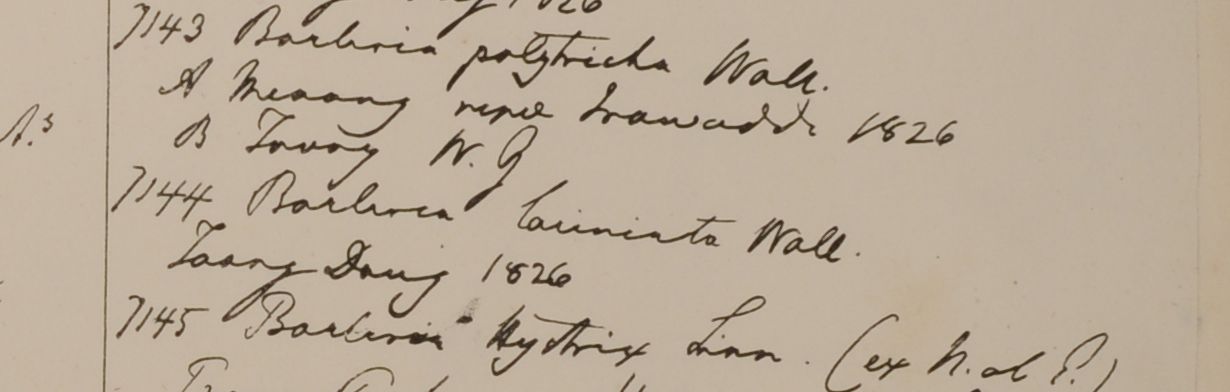 1826
7143 Barleria polytricha Wall.
A Meaong ripae Irawaddi 1826
B Tavoy W. G
7144 Barleria laciniata Wall.
Taong Dong 1826
7145 Barleria Hystrix Linn. (ex N. ab E.)